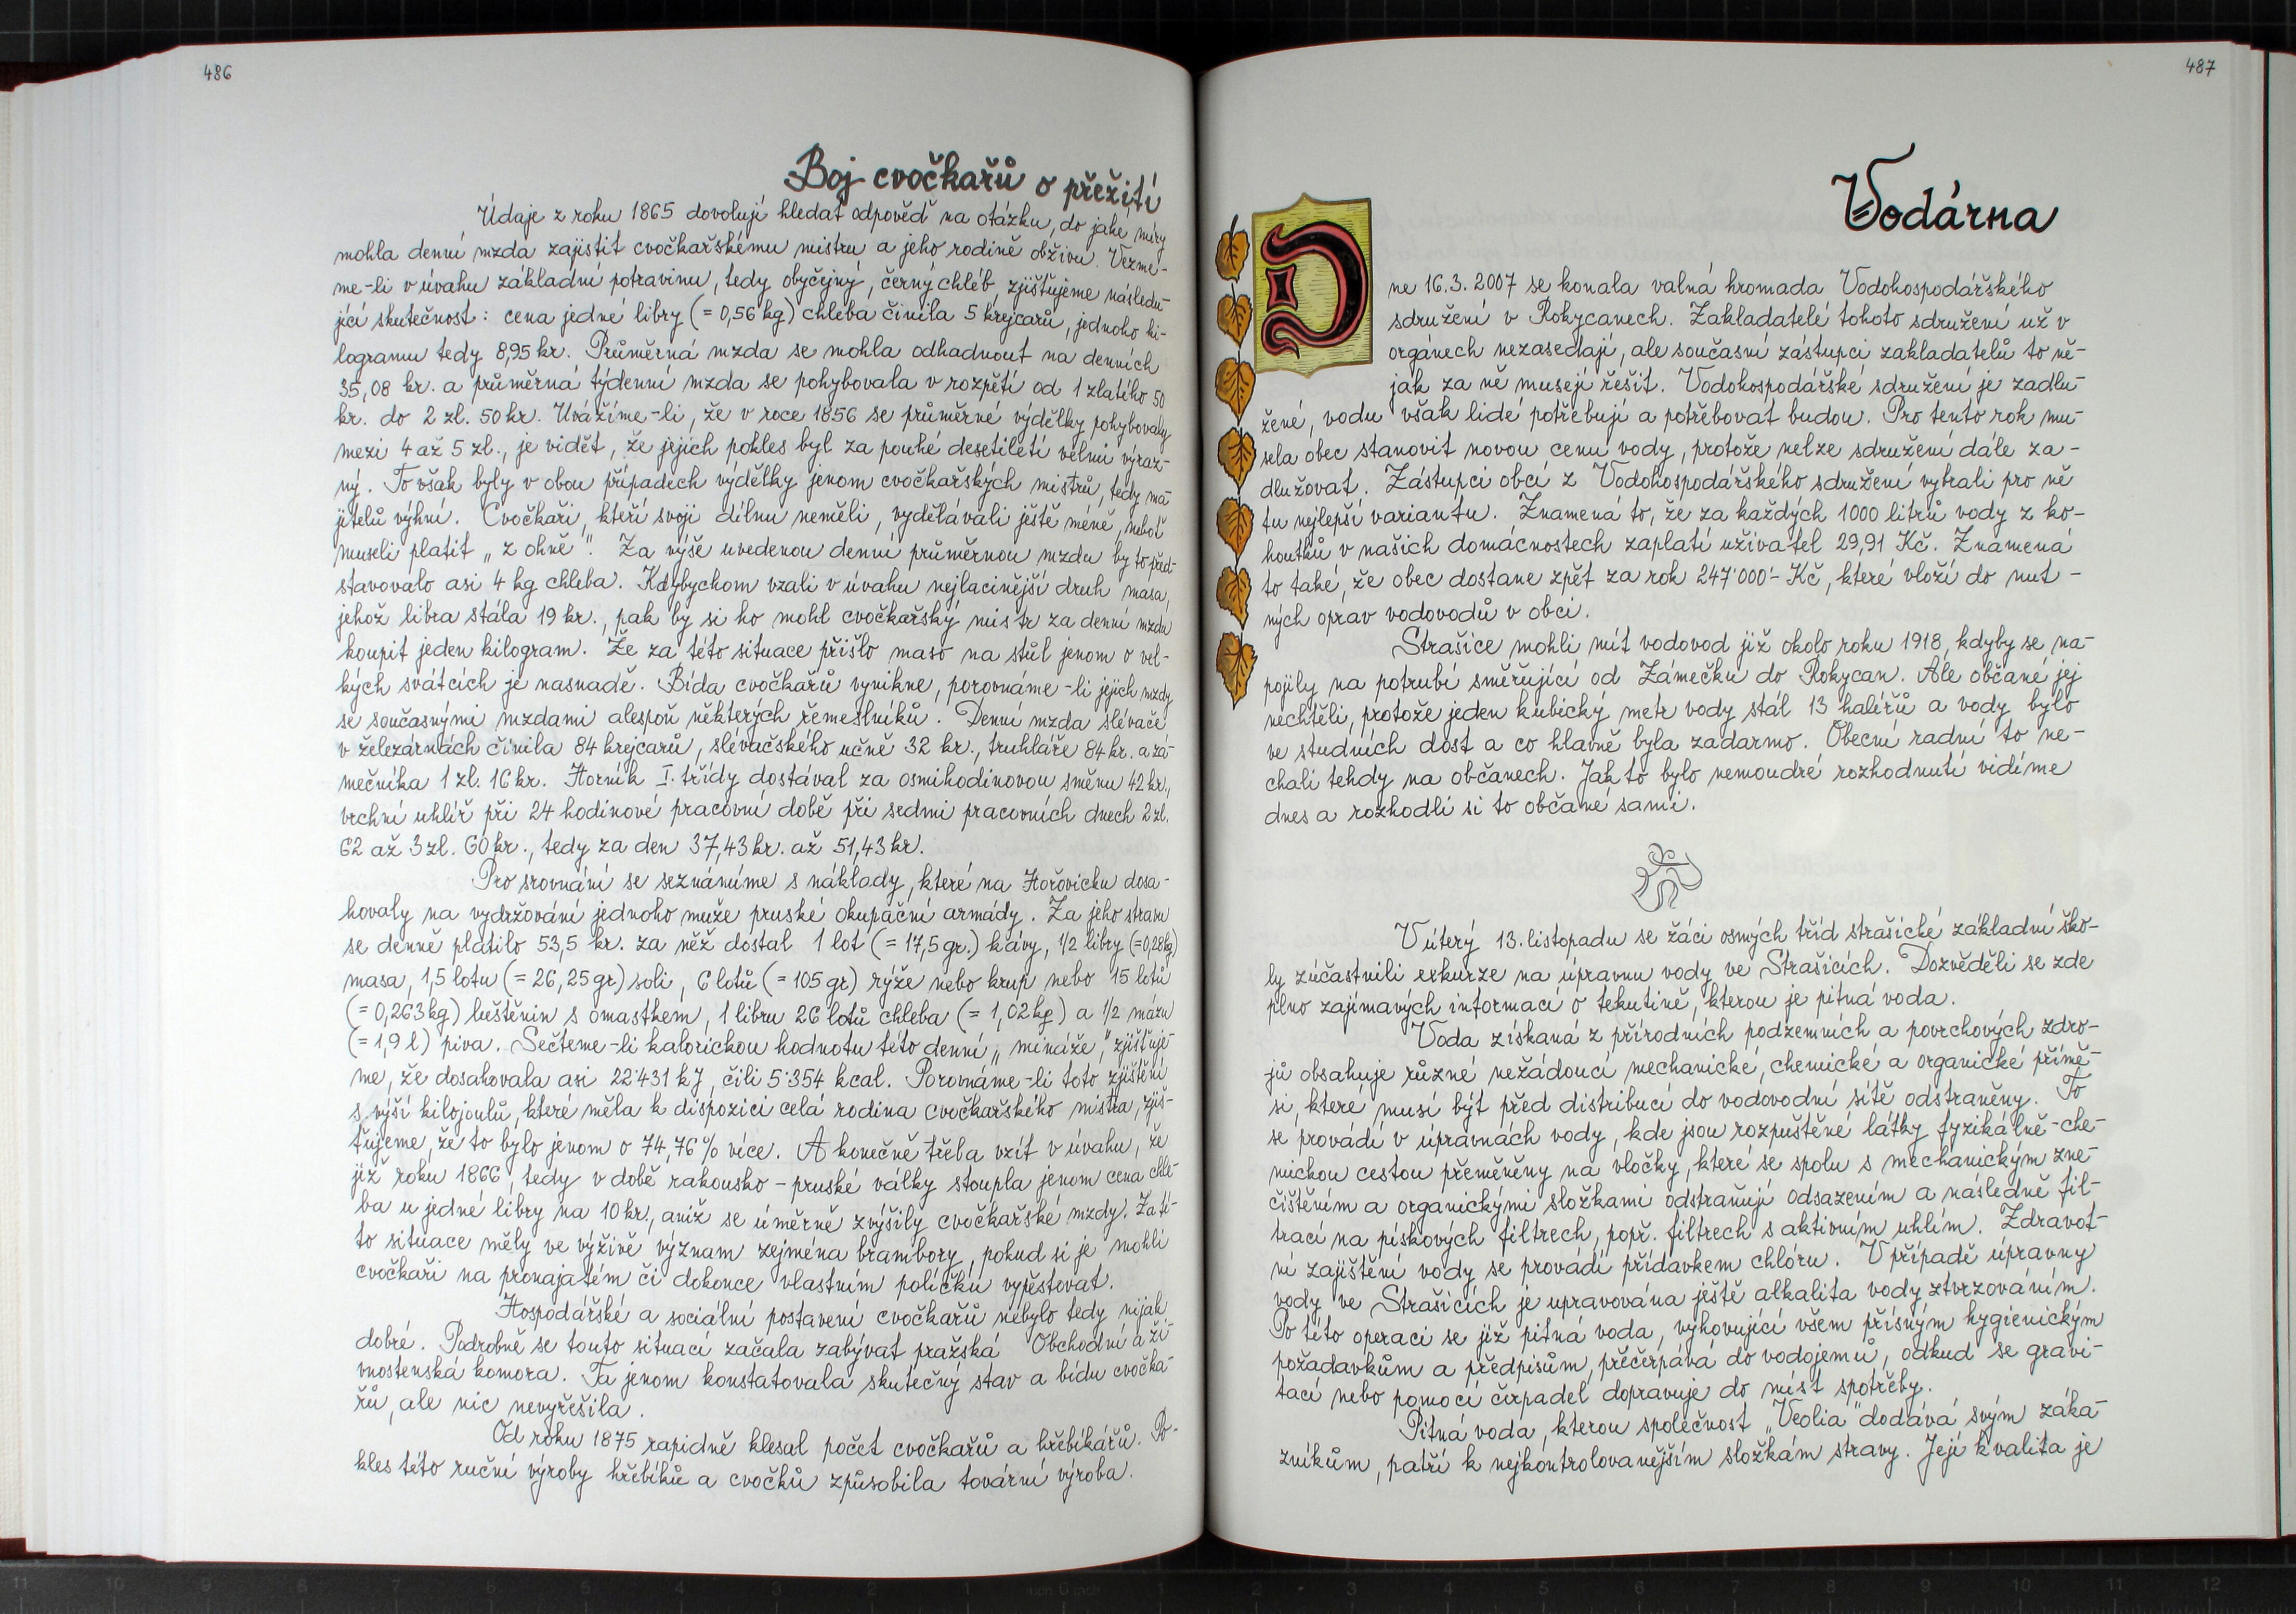 486
Boj cvočkařů o přežití
Údaje z roku 1865 dovolují hledat odpověď na otázku, do jaké míry
mohla denní mzda zajistit cvočkařskému mistru a jeho rodině obživu. Vezme-
me-li v úvahu základní potravinu, tedy obyčejný, černý chléb, zjišťujeme následu-
jící skutečnost: cena jedné libry (= 0,56 kg) chleba činila 5 krejcarů, jednoho ki-
logramu tedy 8,95 kr. Průměrná mzda se mohla odhadnout na denních
35,08 kr. a průměrná týdenní mzda se pohybovala v rozpětí od 1 zlatého 50
kr. do 2 zl. 50 kr. Uvážíme-li, že v roce 1856 se průměrné výdělky pohybovaly
mezi 4 až 5 zl., je vidět, že jejich pokles byl za pouhé desetiletí velmi výraz-
ný. To však byly v obou případech výdělky jenom cvočkařských mistrů, tedy ma-
jitelů výhní. Cvočkaři, kteří svoji dílnu neměli, vydělávali ještě méně, neboť
museli platit „z ohně“. Za výše uvedenou denní průměrnou mzdu by to před-
stavovalo asi 4 kg chleba. Kdybychom vzali v úvahu nejlacinější druh masa,
jehož libra stála 19 kr., pak by si ho mohl cvočkařský mistr za denní mzdu
koupit jeden kilogram. Že za této situace přišlo maso na stůl jenom o vel-
kých svátcích je nasnadě. Bída cvočkařů vynikne, porovnáme-li jejich mzdy
se současnými mzdami alespoň některých řemeslníků. Denní mzda slévače
v železárnách činila 84 krejcarů, slévačského učně 32 kr., truhláře 84 kr. a zá-
mečníka 1 zl. 16 kr. Horník I. třídy dostával za osmihodinovou směnu 42 kr.,
vrchní uhlíř při 24 hodinové pracovní době při sedmi pracovních dnech 2 zl.
62 až 3 zl. 60 kr., tedy za den 37,43 kr. až 51,43 kr.
Pro srovnání se seznámíme s náklady, které na Hořovicku dosa-
hovaly na vydržování jednoho muže pruské okupační armády. Za jeho stravu
se denně platilo 53,5 kr. za něž dostal 1 lot (= 17,5 gr.) kávy, 1/2 libry (=0,28 kg)
masa, 1,5 lotu (= 26,25 gr) soli, 6 lotů (= 105 gr) rýže nebo krup nebo 15 lotů
(= 0,263 kg) luštěnin s omastkem, 1 libru 26 lotů chleba (= 1,02 kg) a 1/2 mázu
(= 1,9 l) piva. Sečteme-li kalorickou hodnotu této denní „mináže“, zjišťuje-
me, že dosahovala asi 22'431 kJ, čili 5'354 kcal. Porovnáme-li toto zjištění
s výší kilojoulů, které měla k dispozici celá rodina cvočkařského mistra, zjiš-
ťujeme, že to bylo jenom o 74,76 % více. A konečně třeba vzít v úvahu, že
již roku 1866, tedy v době rakousko-pruské války stoupla jenom cena chle-
ba u jedné libry na 10 kr., aniž se úměrně zvýšily cvočkařské mzdy. Za té-
to situace měly ve výživě význam zejména brambory, pokud si je mohli
cvočkaři na pronajatém či dokonce vlastním políčku vypěstovat.
Hospodářské a sociální postavení cvočkařů nebylo tedy nijak
dobré. Podrobně se touto situací začala zabývat pražská Obchodní a ži-
vnostenská komora. Ta jenom konstatovala skutečný stav a bídu cvočka-
řů, ale nic nevyřešila.
Od roku 1875 rapidně klesal počet cvočkařů a hřebíkářů. Po-
kles této ruční výroby hřebíků a cvočků způsobila tovární výroba.
487
Vodárna
Dne 16.3.2007 se konala valná hromada Vodohospodářského
sdružení v Rokycanech. Zakladatelé tohoto sdružení už v
orgánech nezasedají, ale současní zástupci zakladatelů to ně-
jak za ně musejí řešit. Vodohospodářské sdružení je zadlu-
žené, vodu však lidé potřebují a potřebovat budou. Pro tento rok mu-
sela obec stanovit novou cenu vody, protože nelze sdružení dále za-
dlužovat. Zástupci obcí z Vodohospodářského sdružení vybrali pro ně
tu nejlepší variantu. Znamená to, že za každých 1000 litrů vody z ko-
houtků v našich domácnostech zaplatí uživatel 29,91 Kč. Znamená
to také, že obec dostane zpět za rok 247'000'- Kč, které vloží do nut-
ných oprav vodovodů v obci.
Strašice mohli mít vodovod již okolo roku 1918, kdyby se na-
pojily na potrubí směřující od Zámečku do Rokycan. Ale občané jej
nechtěli, protože jeden kubický metr vody stál 13 halířů a vody bylo
ve studních dost a co hlavně byla zadarmo. Obecní radní to ne-
chali tehdy na občanech. Jak to bylo nemoudré rozhodnutí vidíme
dnes a rozhodli si to občané sami.
V úterý 13. listopadu se žáci osmých tříd strašické základní ško-
ly zúčastnili exkurze na úpravnu vody ve Strašicích. Dozvěděli se zde
plno zajímavých informací o tekutině, kterou je pitná voda.
Voda získaná z přírodních podzemních a povrchových zdro-
jů obsahuje různé nežádoucí mechanické, chemické a organické přímě-
si, které musí být před distribucí do vodovodní sítě odstraněny. To
se provádí v úpravnách vody, kde jsou rozpuštěné látky fyzikálně-che-
mickou cestou přeměněny na vločky, které se spolu s mechanickým zne-
čištěním a organickými složkami odstraňují odsazením a následně fil-
trací na pískových filtrech, popř. filtrech s aktivním uhlím. Zdravot-
ní zajištění vody se provádí přídavkem chlóru. V případě úpravny
vody ve Strašicích je upravována ještě alkalita vody ztvrzováním.
Po této operaci se již pitná voda, vyhovující všem přísným hygienickým
požadavkům a předpisům, přečerpává do vodojemů, odkud se gravi-
tací nebo pomocí čerpadel dopravuje do míst spotřeby.
Pitná voda, kterou společnost „Veolia“ dodává svým záka-
zníkům, patří k nejkontrolovanějším složkám stravy. Její kvalita je